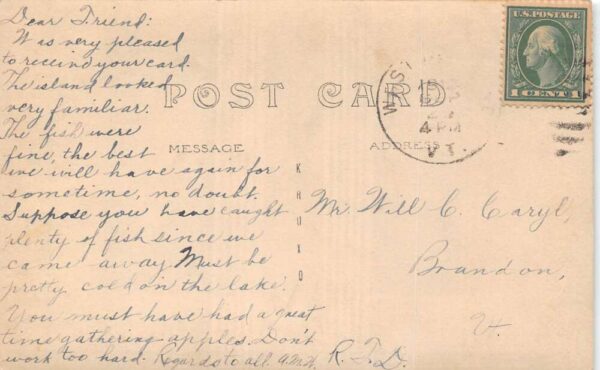 Dear Friend:
Was very pleased
to receive your card.
The island looked
very familiar.
The fish were
fine, the best
we will have again for
sometime, no doubt.
Suppose you have caught
plenty of fish since we
came away. Must be
pretty cold on the lake.
You must have had a great
time gathering apples. Don't
work too hard. Regards to all.
POST CARD
MESSAGE
ADDRESS
KRUXO
U.S. POSTAGE
1 CENT 1
4 PM
VT.
Mr. Will C. Caryl,
Brandon,
Vt.
R.F.D.